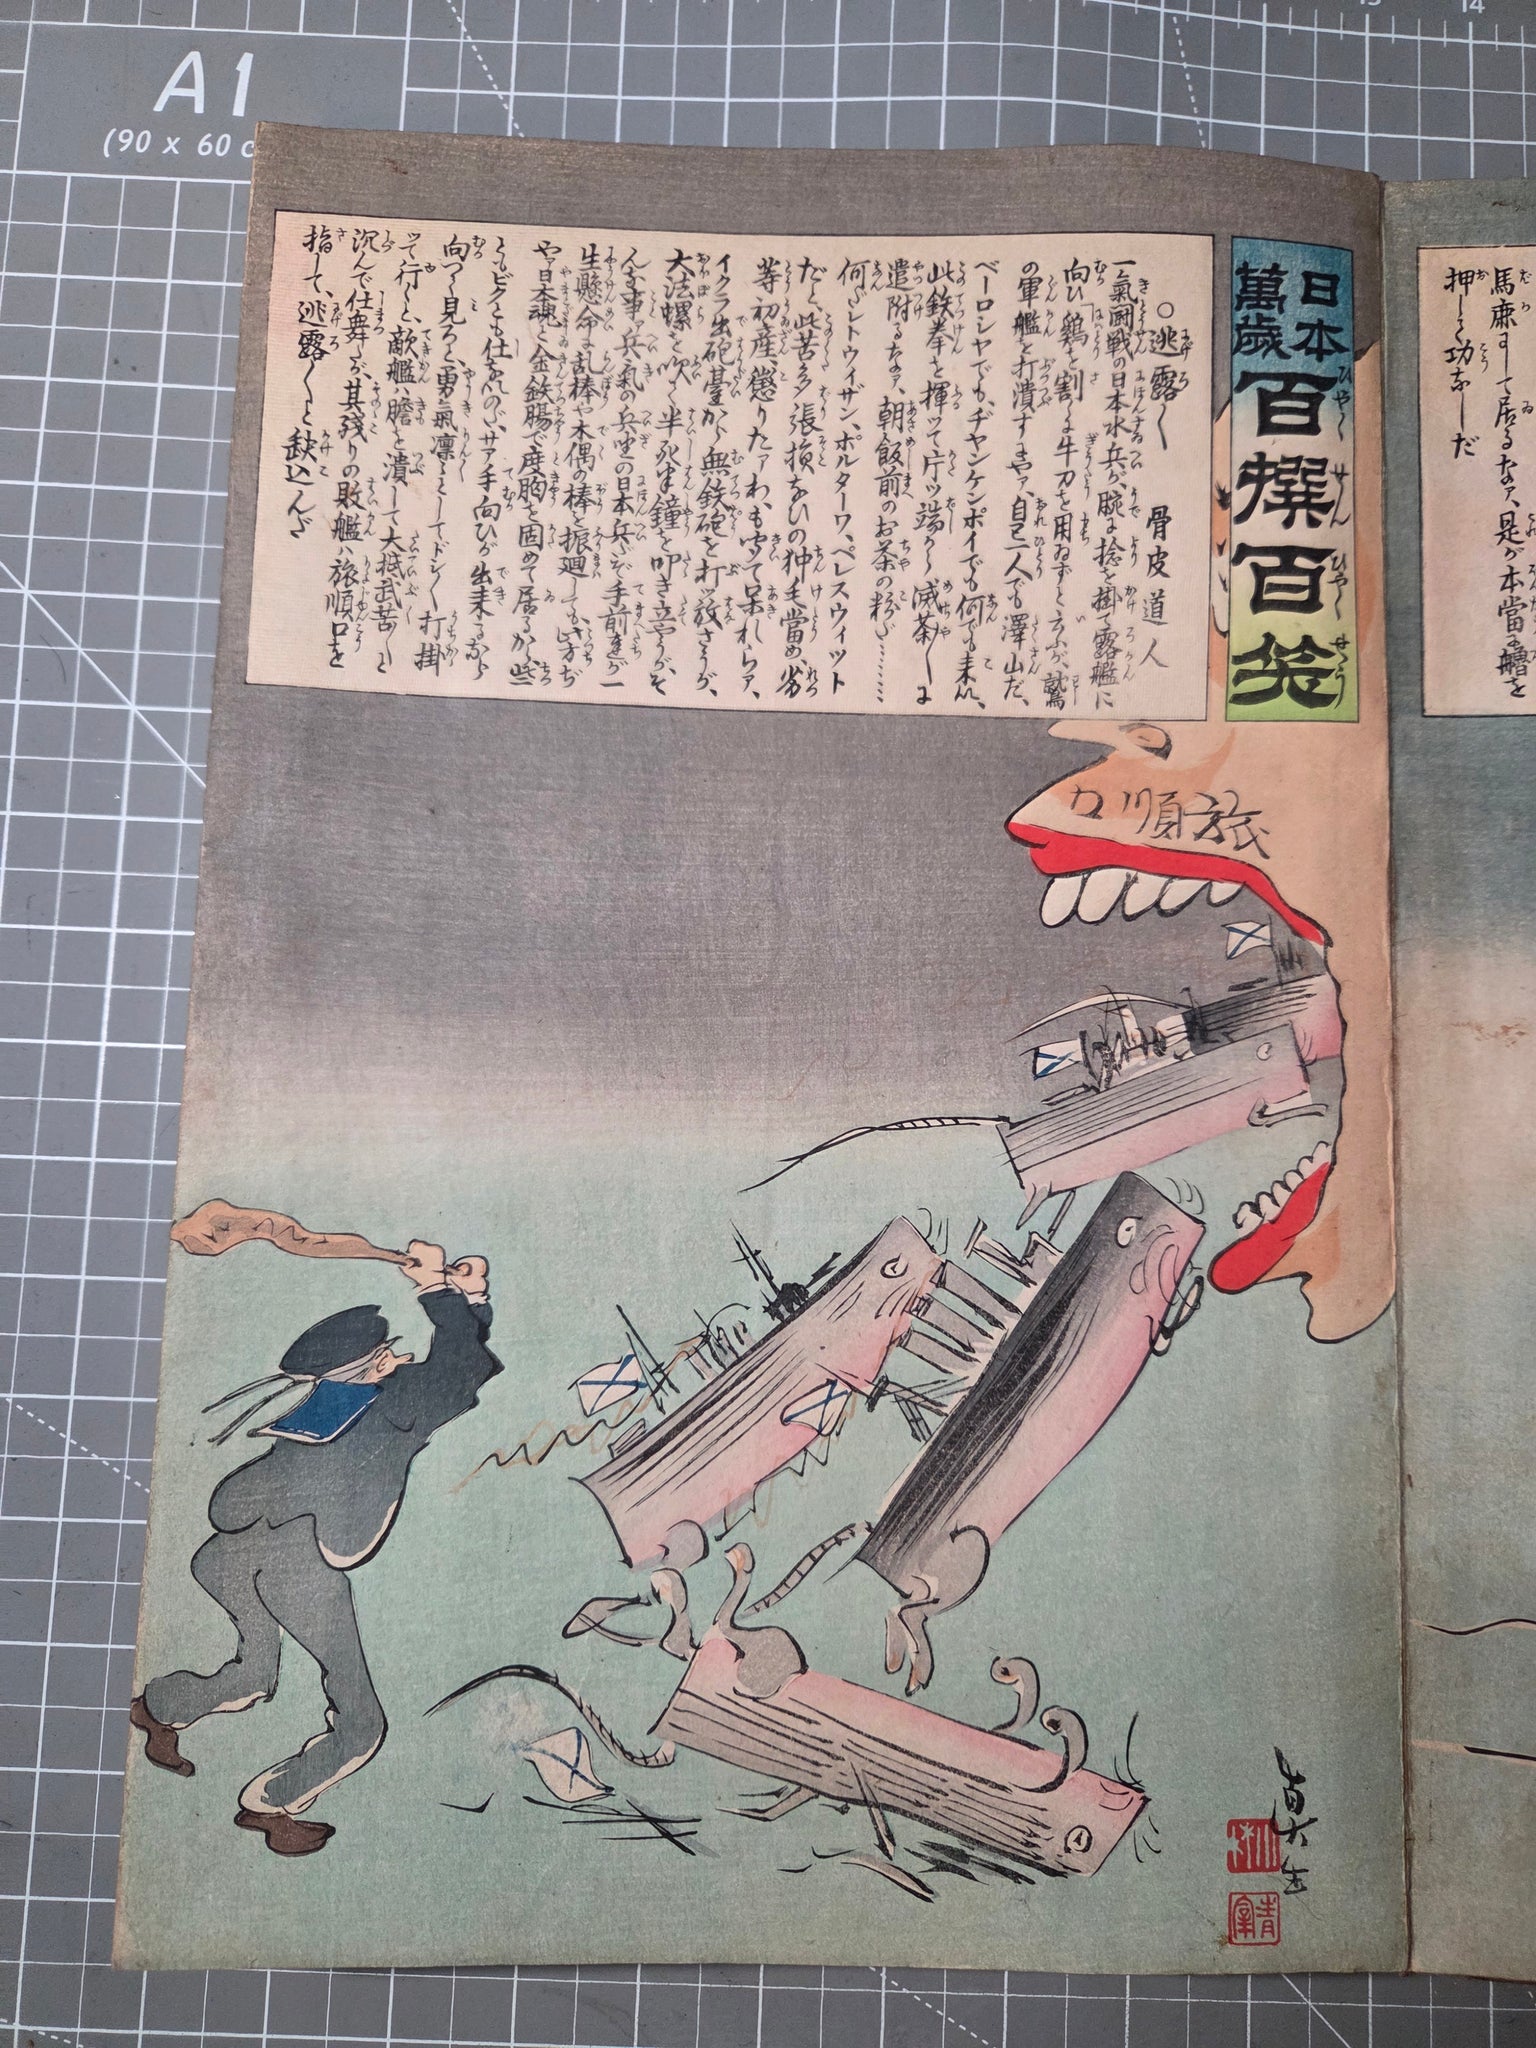 A1
(90 x 60 c
13
14
馬鹿にして居るなァ、是が本當の艪を
押しく功なしだ
日本
萬歳
百撰百笑
○逃露〳〵
骨皮道人
一氣闘戦の日本水兵が、腕に捻を掛て露艦に
向ひ「鶏を割くに牛刀を用ゐずと云ふが、鷲
の軍艦を打潰すにやァ、自己一人でも澤山だ、
ベーロシヤでも、ヂヤンケンポイでも何でも来い、
此鉄拳を揮ッて片ッ端から滅茶〳〵に
遣附るなァ、朝飯前のお茶の粉だ………
何だレトウィザン、ポルターワ、ペレスウィット
だと、此苦多張損なひの狆毛當め、劣
等初産、懲りたァわ、も宜て呆れらァ、
イクラ出砲臺から無鉄砲を打ッ放さうが、
大法螺を吹く半死半鐘を叩き立やうが、そ
んな事ァ兵氣の兵哇の日本兵だぞ手前達が一
生懸命に乱棒や木偶の棒を振廻しても、此方ぢ
やァ日本魂と金鉄腸で度胸を固めて居るから、些
ともビクとも仕ないのだ、サァ手向ひが出来るなら
向つて見ろと、勇氣凛々としてドシ〳〵打掛
ッて行くと、敵艦ハ膽を潰して大抵武苦〳〵と
沉んで仕舞たが、其残りの敗艦ハ旅順口を
指して、逃露〳〵と缺込んだ
旅順口